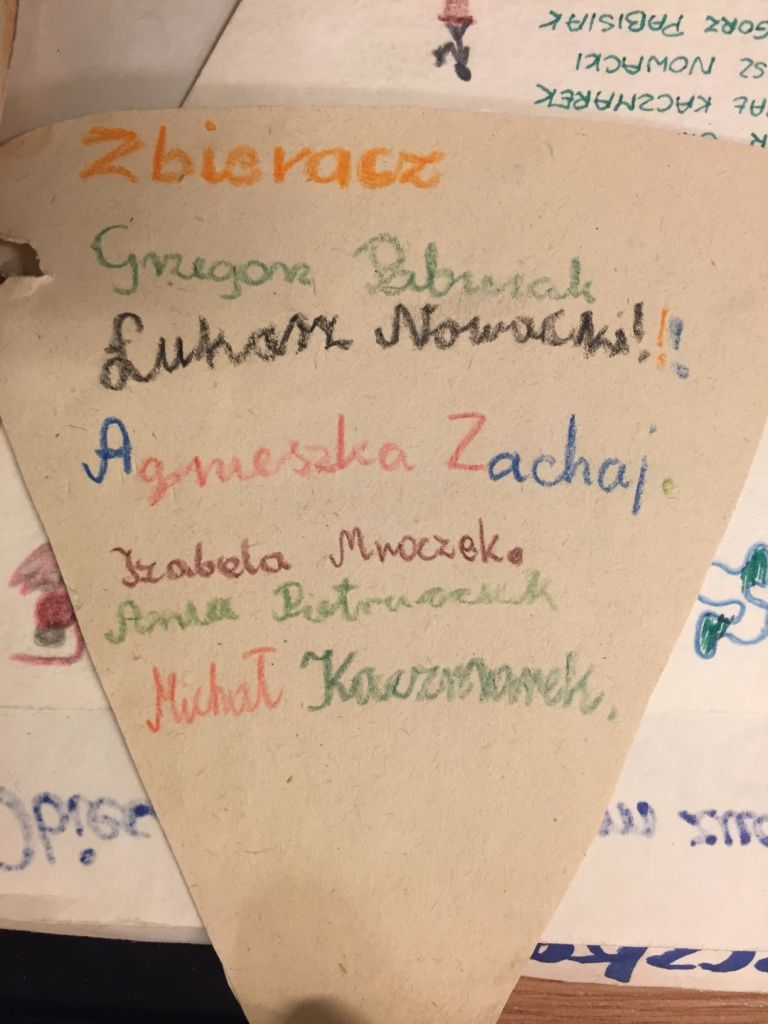 GORZ PABISIAK
SZ NOWACKI
AŁ KACZMAREK
Zbieracz
Grzegorz Pabisiak
Łukasz Nowacki!!!
Agnieszka Zachaj.
Izabela Mroczek.
Ania
Michał Kaczmarek.